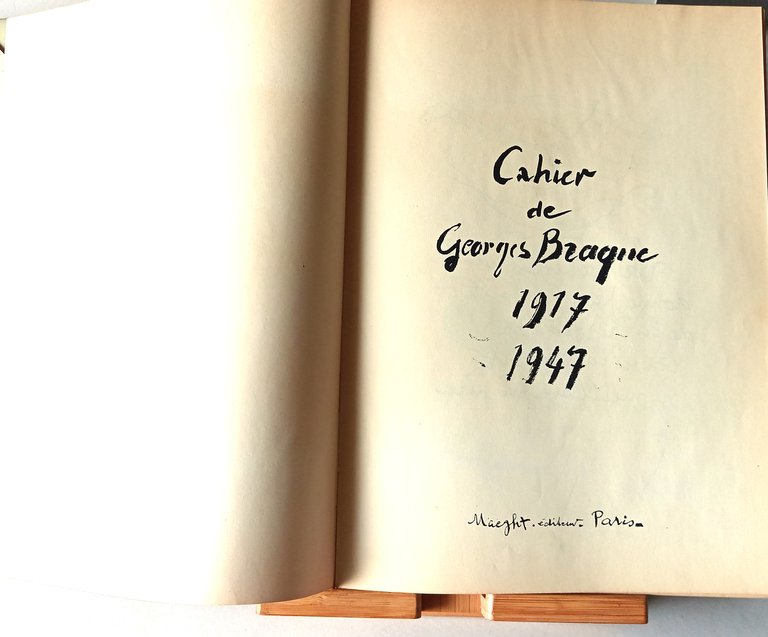 Cahier
de
Georges Braque
1917
1947
Maeght. éditeur. Paris.